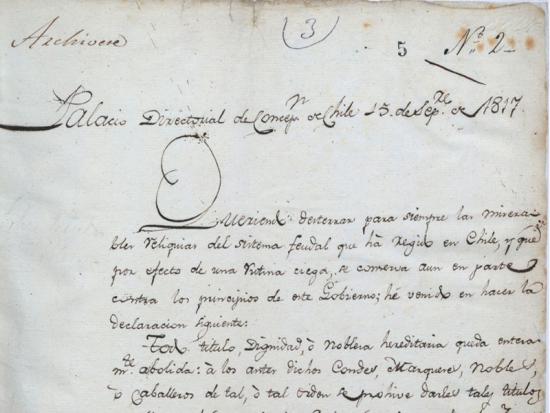 Archivese
3
5
N.º 2
Palacio Directorial de Concepn. de Chile 15. de Sepre. de 1817.
Queriendo desterrar para siempre las misera-
bles reliquias del sistema feudal que há regido en Chile, y que
por efecto de una rutina ciega, se conserva aun en parte
contra los principios de este Gobierno; hé venido en hacer la
declaracion siguiente:
Todo titulo, Dignidad, ò Nobleza hereditaria queda entera-
mte. abolida: à los antes dichos Condes, Marqueses, Nobles,
ò Caballeros de tal, ò tal orden se prohive darles tales titulos,